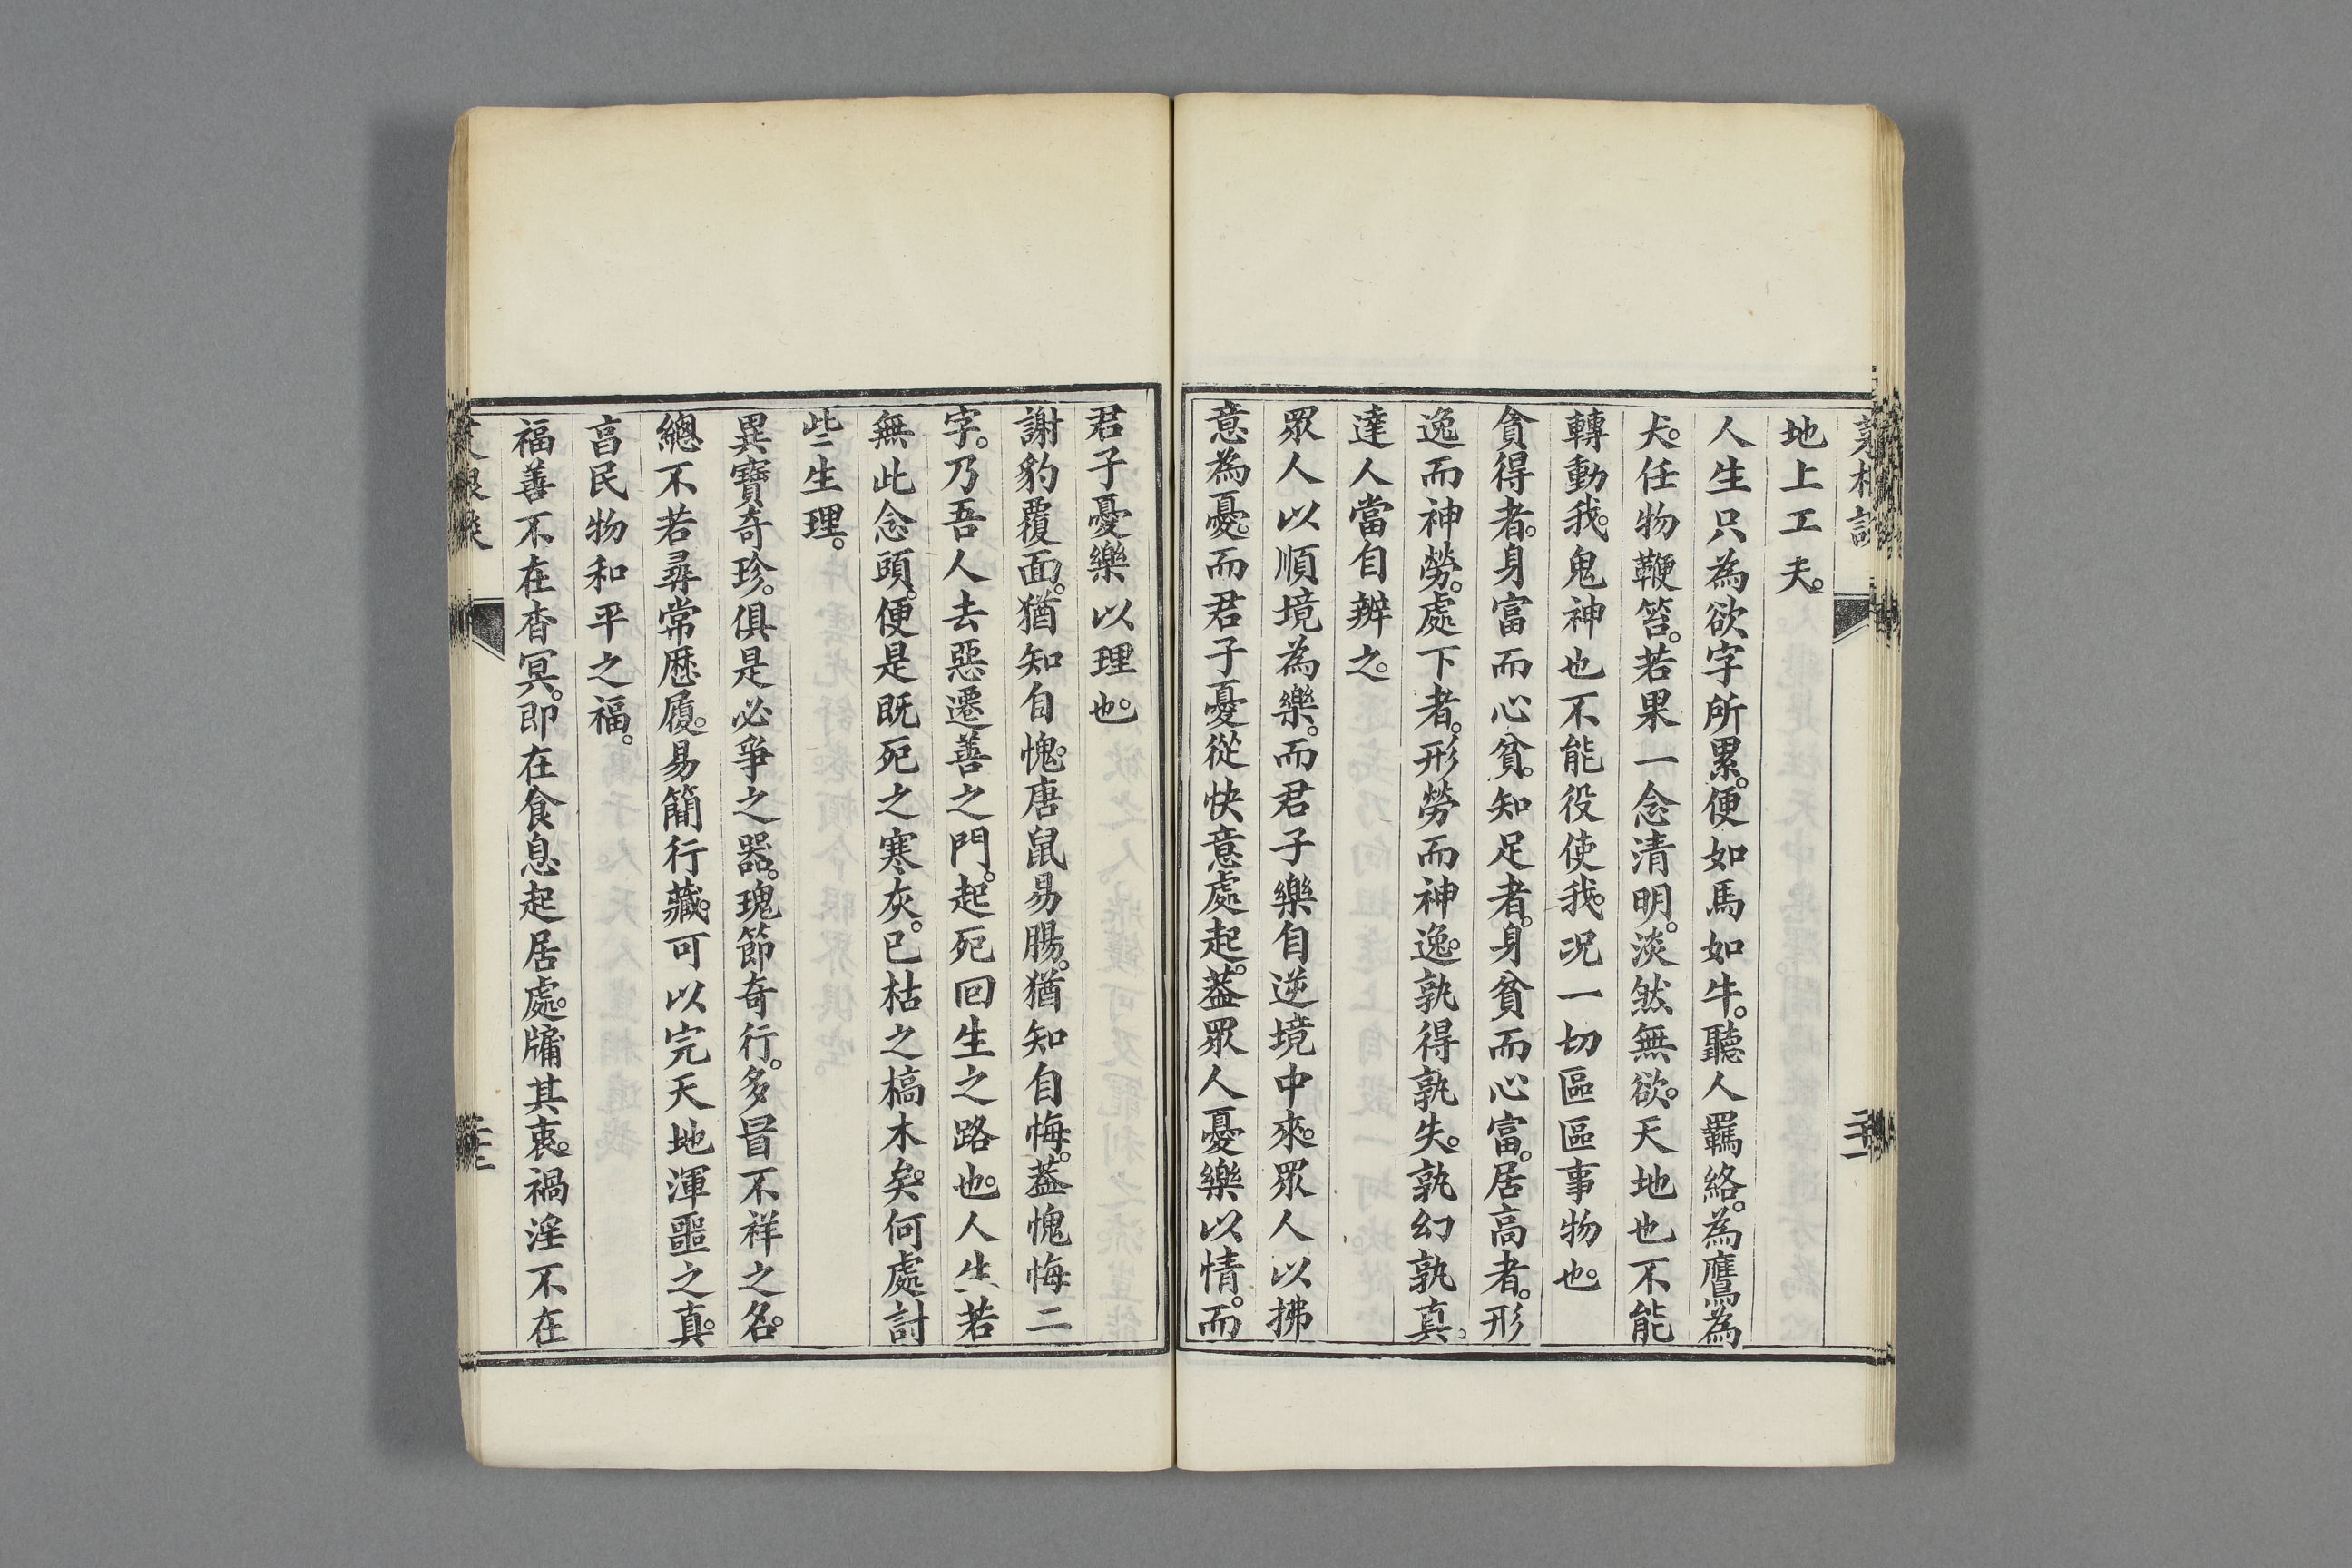 地上工夫。
人生只為欲字所累。便如馬如牛。聽人羈絡。為鷹為
犬。任物鞭笞。若果一念清明。淡然無欲。天地也不能
轉動我。鬼神也不能役使我。况一切區區事物也。
貪得者。身富而心貧。知足者。身貧而心富。居高者。形
逸而神勞。處下者。形勞而神逸。孰得孰失。孰幻孰真。
達人當自辨之。
眾人以順境為樂。而君子樂自逆境中來。眾人以拂
意為憂。而君子憂從快意處起。葢眾人憂樂以情。而
君子憂樂以理也。
謝豹覆面。猶知自愧。唐鼠易腸。猶知自悔。葢愧悔二
字。乃吾人去惡遷善之門。起死回生之路也。人生若
無此念頭。便是既死之寒灰。已枯之槁木矣。何處討
些生理。
異寶奇珍。俱是必爭之器。瑰節奇行。多冒不祥之名。
總不若尋常歷履。易簡行藏。可以完天地渾噩之真。
享民物和平之福。
福善不在杳冥。即在食息起居處。牖其衷。禍淫不在